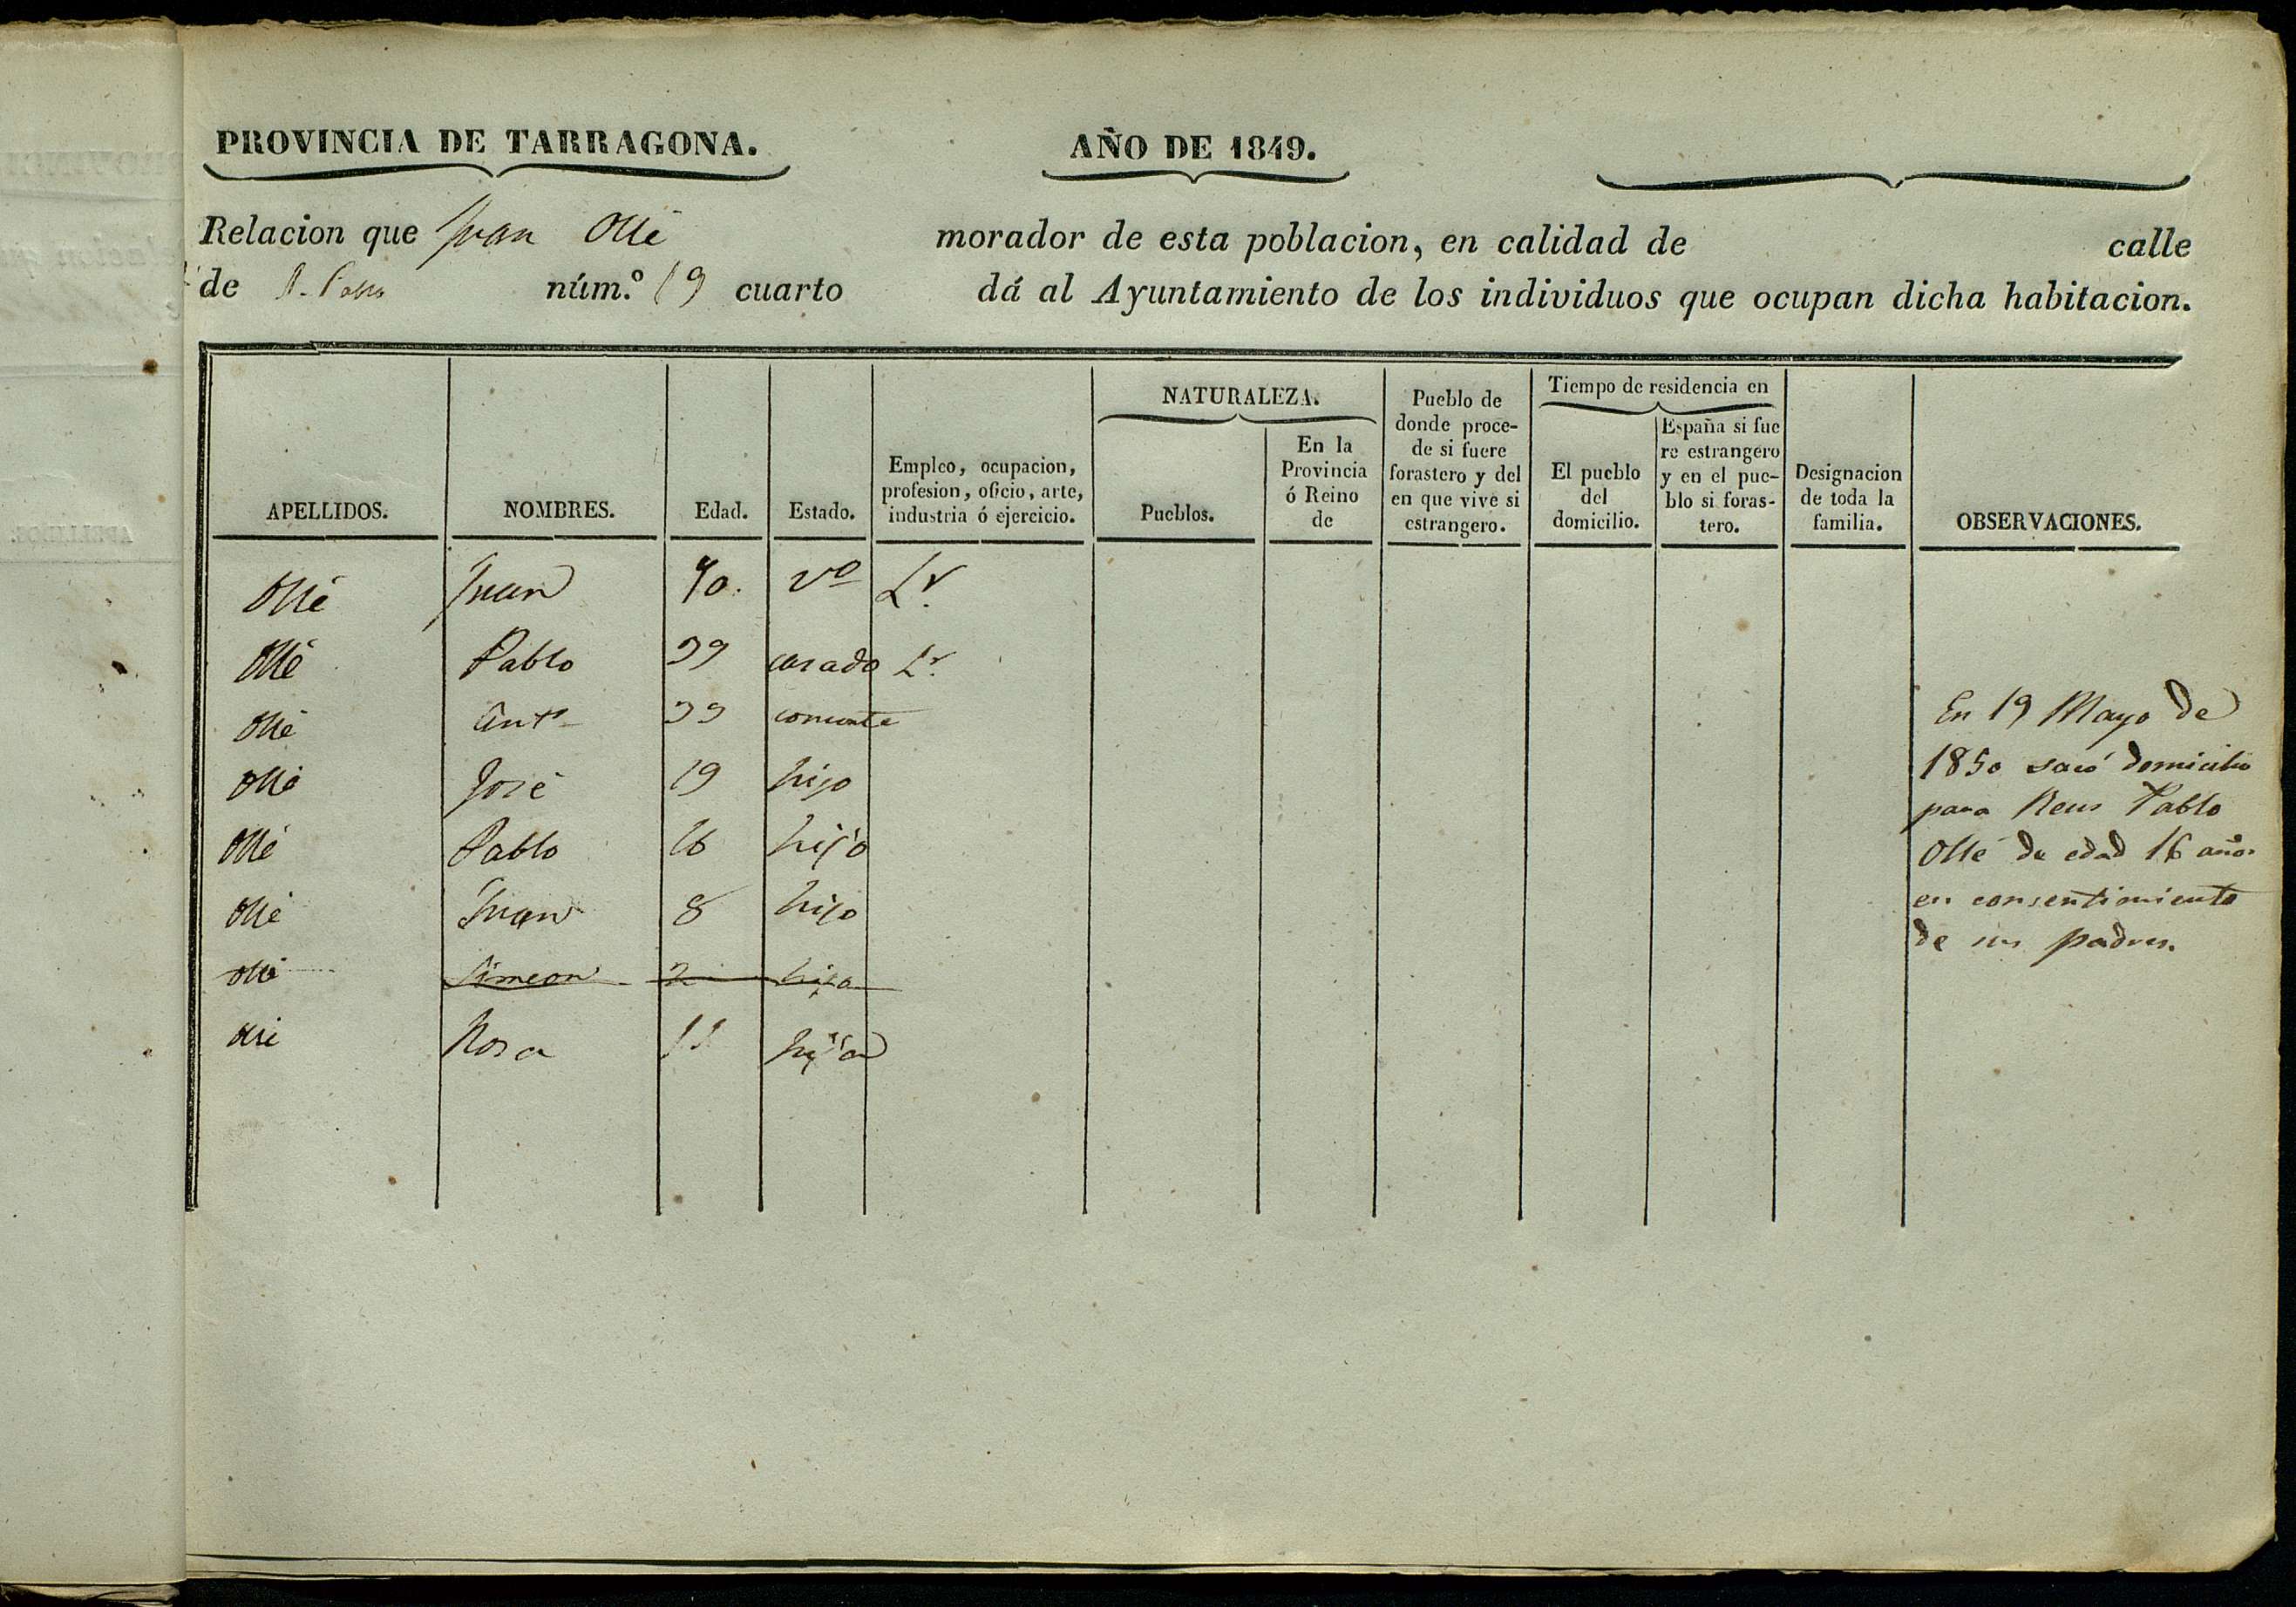 PROVINCIA DE TARRAGONA. AÑO DE 1849.
Relacion que Juan Ollé morador de esta poblacion, en calidad de calle
de S. Pablo núm.º 19 cuarto dá al Ayuntamiento de los individuos que ocupan dicha habitacion.
APELLIDOS.
NOMBRES.
Edad.
Estado.
Empleo, ocupacion,
profesion, oficio, arte,
industria ó ejercicio.
NATURALEZA.
Pueblos.
En la
Provincia
ó Reino
de
Pueblo de
donde proce-
de si fuere
forastero y del
en que vive si
estrangero.
Tiempo de residencia en
El pueblo
del
domicilio.
España si fue
re estrangero
y en el pue-
blo si foras-
tero.
Designacion
de toda la
familia.
OBSERVACIONES.
Ollé Juan 70. vº Lr.
Ollé Pablo 39 casado Lr.
Ollé Antª 39 consorte
Ollé José 19 hijo
Ollé Pablo 16 hijo
Ollé Juan 8 hijo
Ollé Simeon 2 hijo
Ollé Rosa 11 hija
En 19 Mayo de
1850 sacó domicilio
para Reus Pablo
Ollé de edad 16 años
en consentimiento
de sus padres.